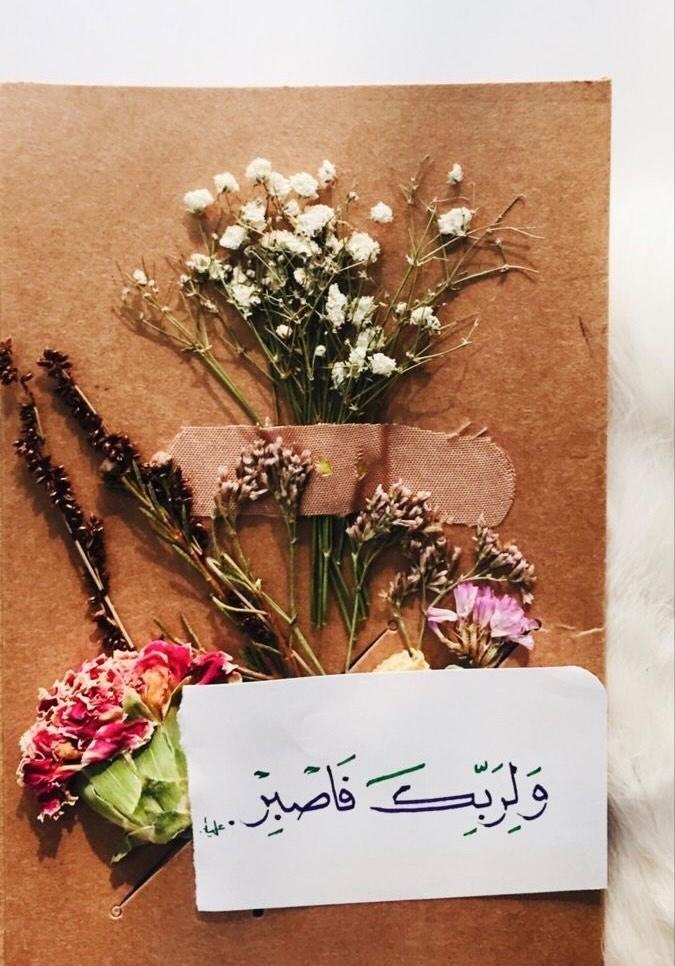 وَلِرَبِّكَ فَاصْبِرْ.